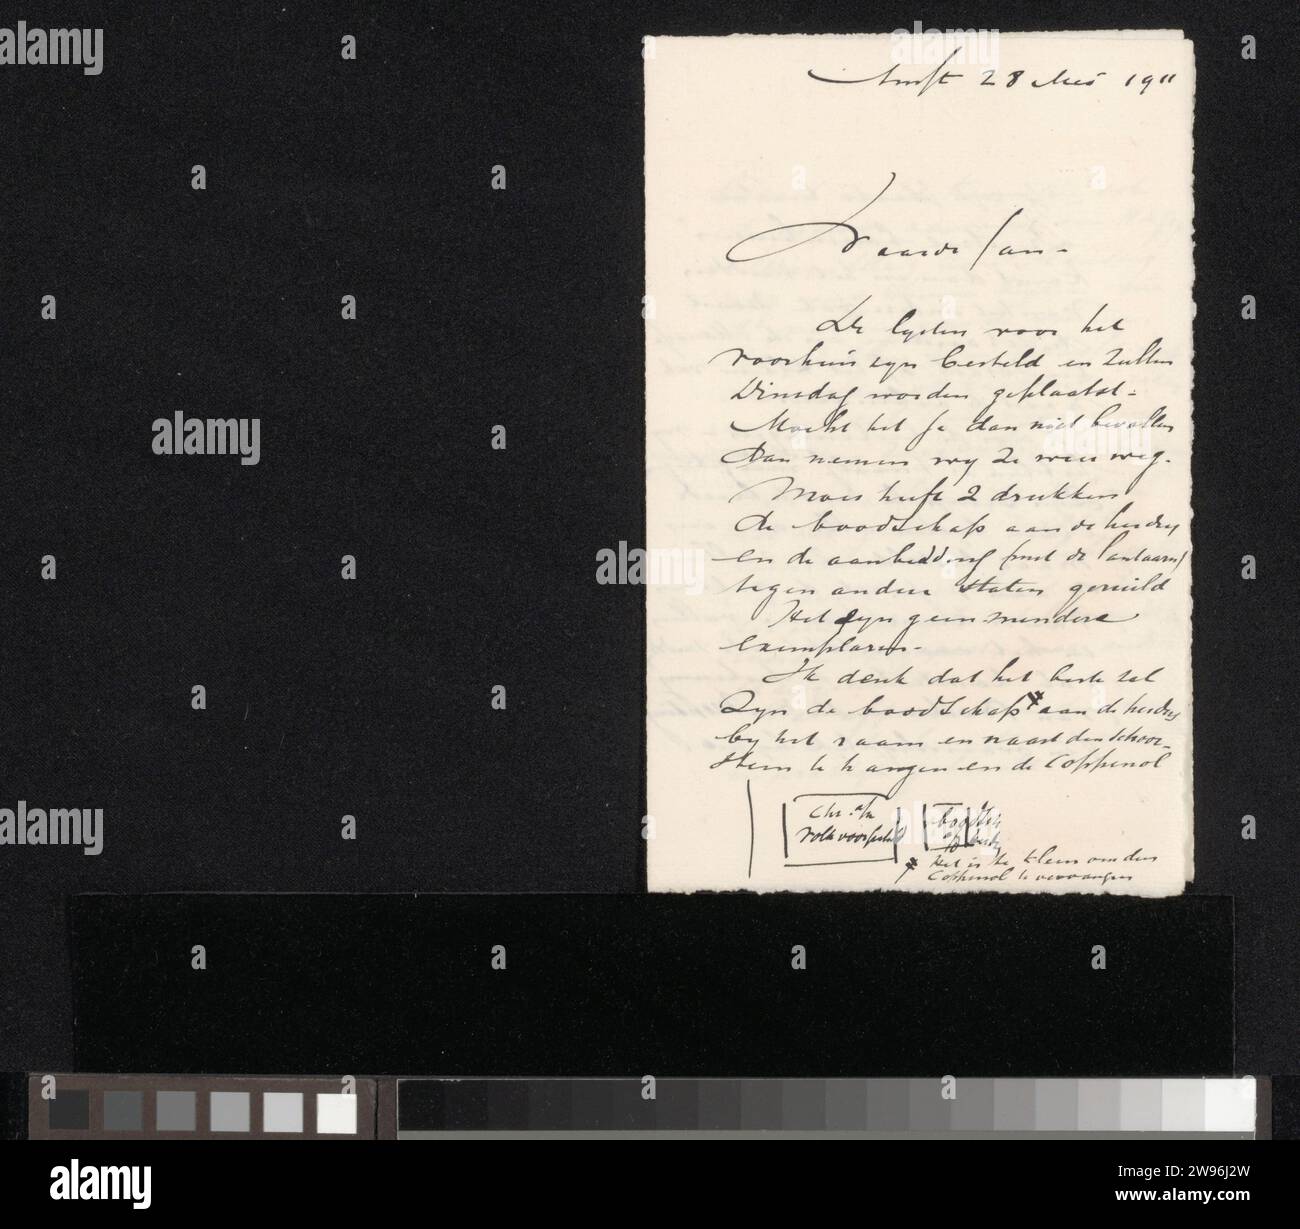 Amst 28 Mei 1911
Waarde Jan -
De lysten voor het
voorhuis zyn besteld en zullen
Dinsdag worden geplaatst -
Mocht het je dan niet bevallen
Dan nemen wy ze weer weg.
Moes heeft 2 drukken
de boodschap aan de herders
en de aanbidding (met de lantaarn)
tegen andere staten geruild
Het zyn geen mindere
exemplaren -
Ik denk dat het beste zal
zyn de boodschap aan de herders
by het raam en naast den schoor-
steen te hangen en de Coppenol
Chr. a/h
volk voorgesteld
boodsch
Het is te klein om den
Coppenol te vervangen
alamy
Image ID: 2W96J2W
www.alamy.com